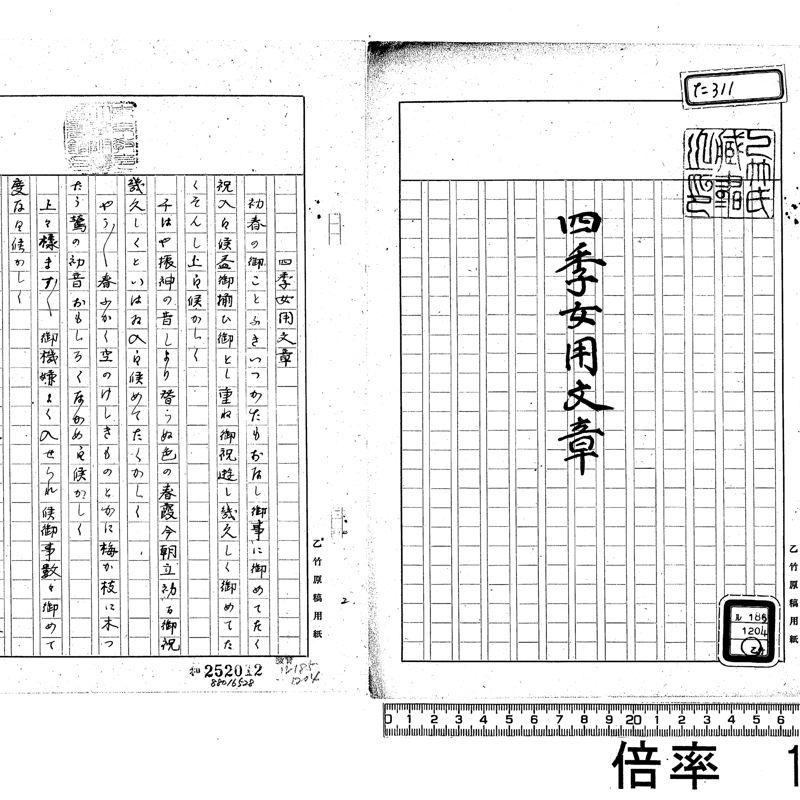 た311
乙竹氏
蔵書
之印
四季女用文章
乙竹原稿用紙
ル185
1204
乙竹
四季女用文章
初春の御ことふきいつかたもおなし御事に御めてたく
祝入まいらせ候益御揃ひ御とし重ね御祝遊し幾久しく御めてた
くそんし上まいらせ候かしく
千はや振神の昔しより替らぬ色の春霞今朝立初る御祝
幾久しくといはね入まいらせ候めてたくかしく
やう〱春ふかく空のけしきものとかに梅か枝に木つ
たう鶯の初音おもしろくなかめまいらせ候かしく
上々様ます〱御機嫌よく入せられ候御事数々御めて
度なまいらせ候かしく
乙竹原稿用紙
2
252012
88016528
ル185
1204
0 1 2 3 4 5 6 7 8 9 20 1 2 3 4 5 6
倍率 1